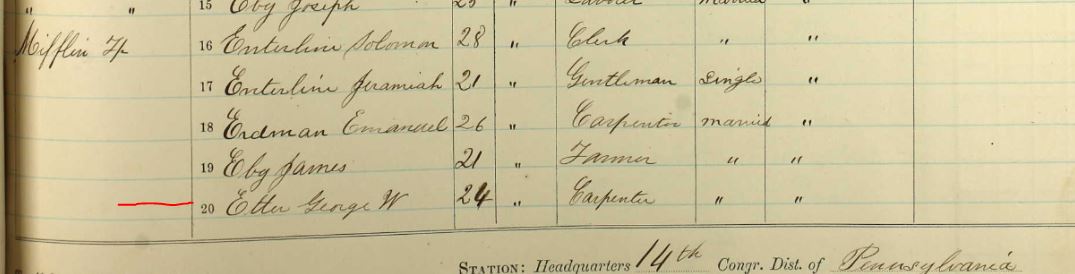 " " 15 Eby Joseph 25 " Labourer married " "
Mifflin Tp 16 Enterline Solomon 28 " Clerk " "
17 Enterline Jeramiah 21 " Gentleman Single "
18 Erdman Emanuel 26 " Carpenter married "
19 Eby James 21 " Farmer " "
20 Etter George W 24 " Carpenter " "
STATION: Headquarters 14th Congr. Dist. of Pennsylvania